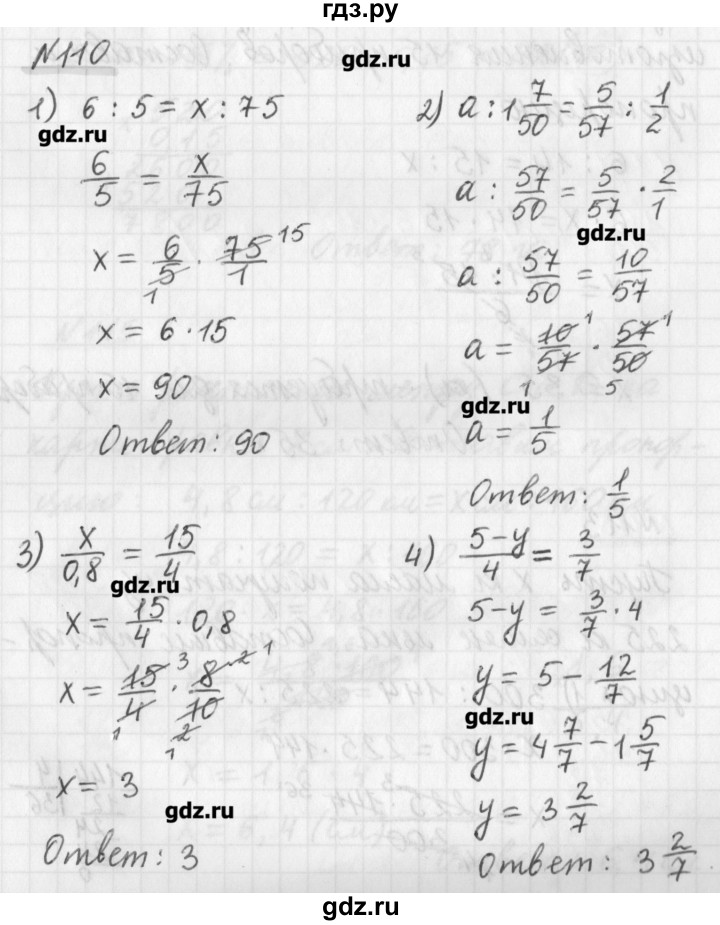 гдз.ру
N110
gdz.ru
1) 6 : 5 = x : 75
gdz.ru
6/5 = x/75
x = 6/5 · 75/1 15
1
x = 6 · 15
x = 90
Ответ: 90
2) a : 1 7/50 = 5/57 : 1/2
a : 57/50 = 5/57 · 2/1
gdz.ru
a : 57/50 = 10/57
a = 10/57 · 57/50
1 1 1 5
gdz.ru
a = 1/5
Ответ: 1/5
3) x/0,8 = 15/4
gdz.ru
x = 15/4 · 0,8
x = 15/4 · 8/10
3 2 1 1 2 1
x = 3
gdz.ru
Ответ: 3
4) (5-y)/4 = 3/7
5-y = 3/7 · 4
y = 5 - 12/7
gdz.ru
y = 4 7/7 - 1 5/7
y = 3 2/7
Ответ: 3 2/7
gdz.ru